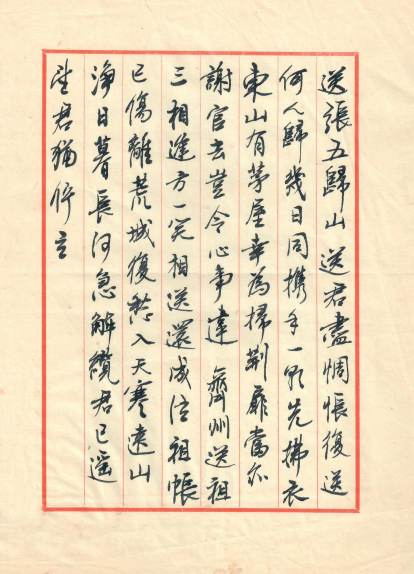 送張五歸山 送君盡惆悵復送
何人歸幾日同携手一朝先拂衣
東山有茅屋幸為掃荊扉當亦
謝官去豈令心事違 齊州送祖
三 相逢方一笑相送還成泣祖帳
已傷離荒城復愁入天寒遠山
淨日暮長河急解纜君已遙
望君猶佇立